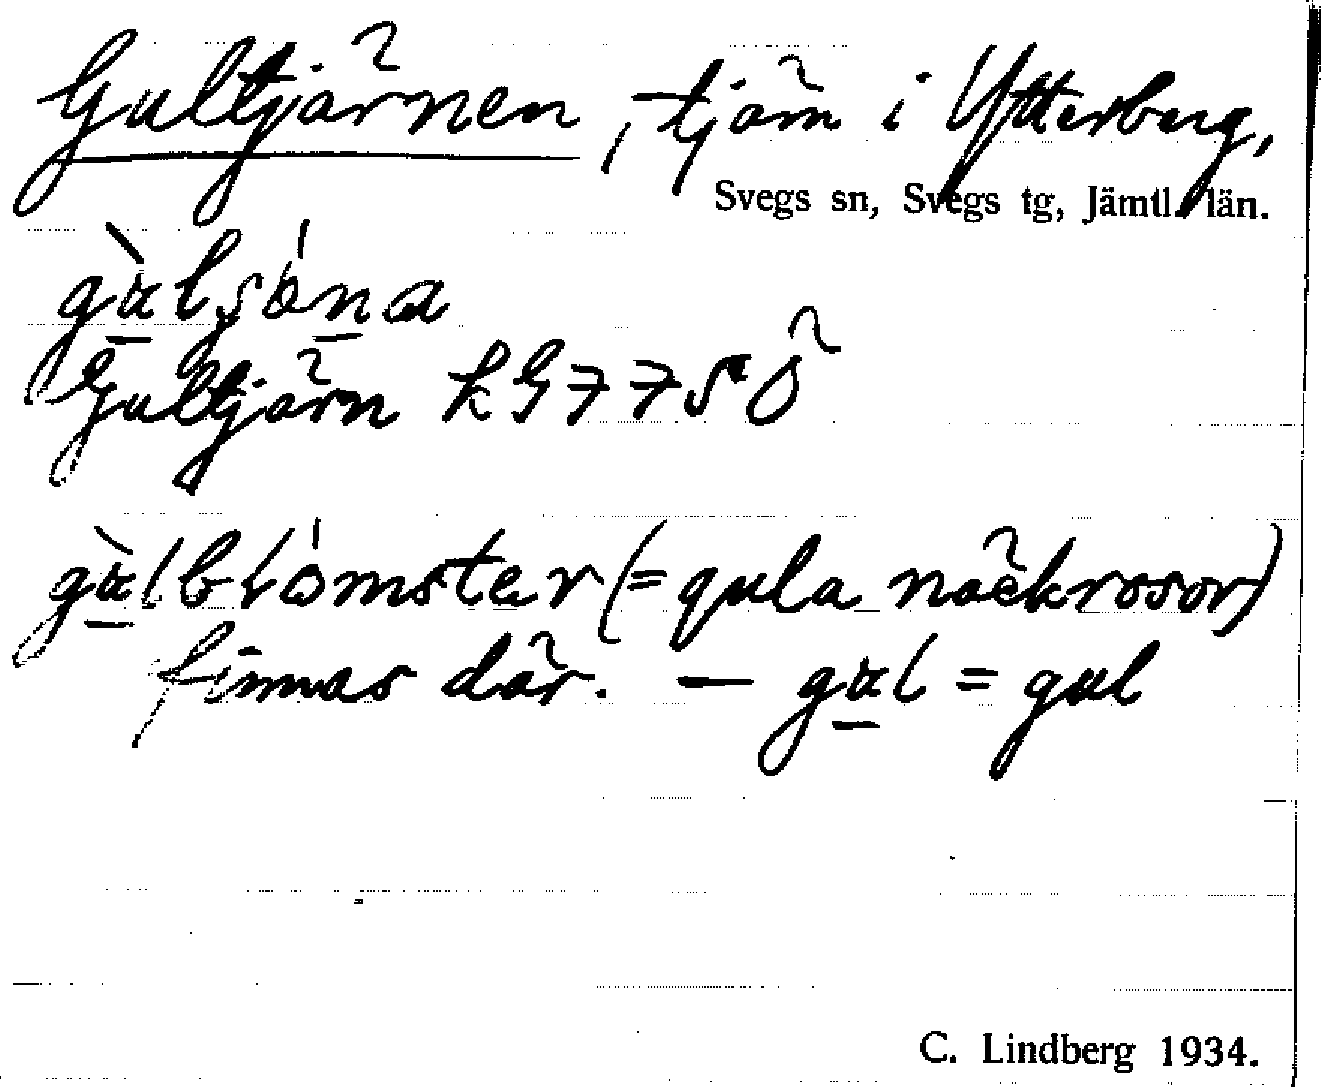 Gultjärnen, tjärn i Ytterberg,
Svegs sn, Svegs tg, Jämtl. län.
Gultjärn kG 77 SÖ
(= gula näckrosor)
finnas där. — gul = gul
C. Lindberg 1934.